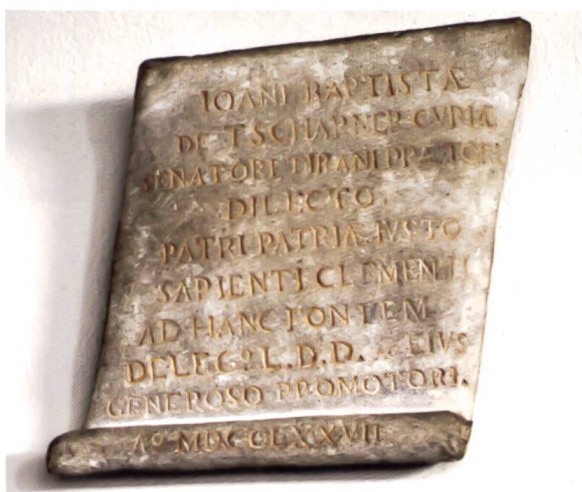 IOANI BAPTISTÆ
DE TSCHARNER CVRIÆ
SENATORI, TIRANI PRÆTORI
DILECTO
PATRI PATRIÆ IVSTO
SAPIENTI CLEMENTI
AD HANC FONTEM
DELEGº L.D.D. EIVS
GENEROSO PROMOTORI.
Aº MDCCLXXVII